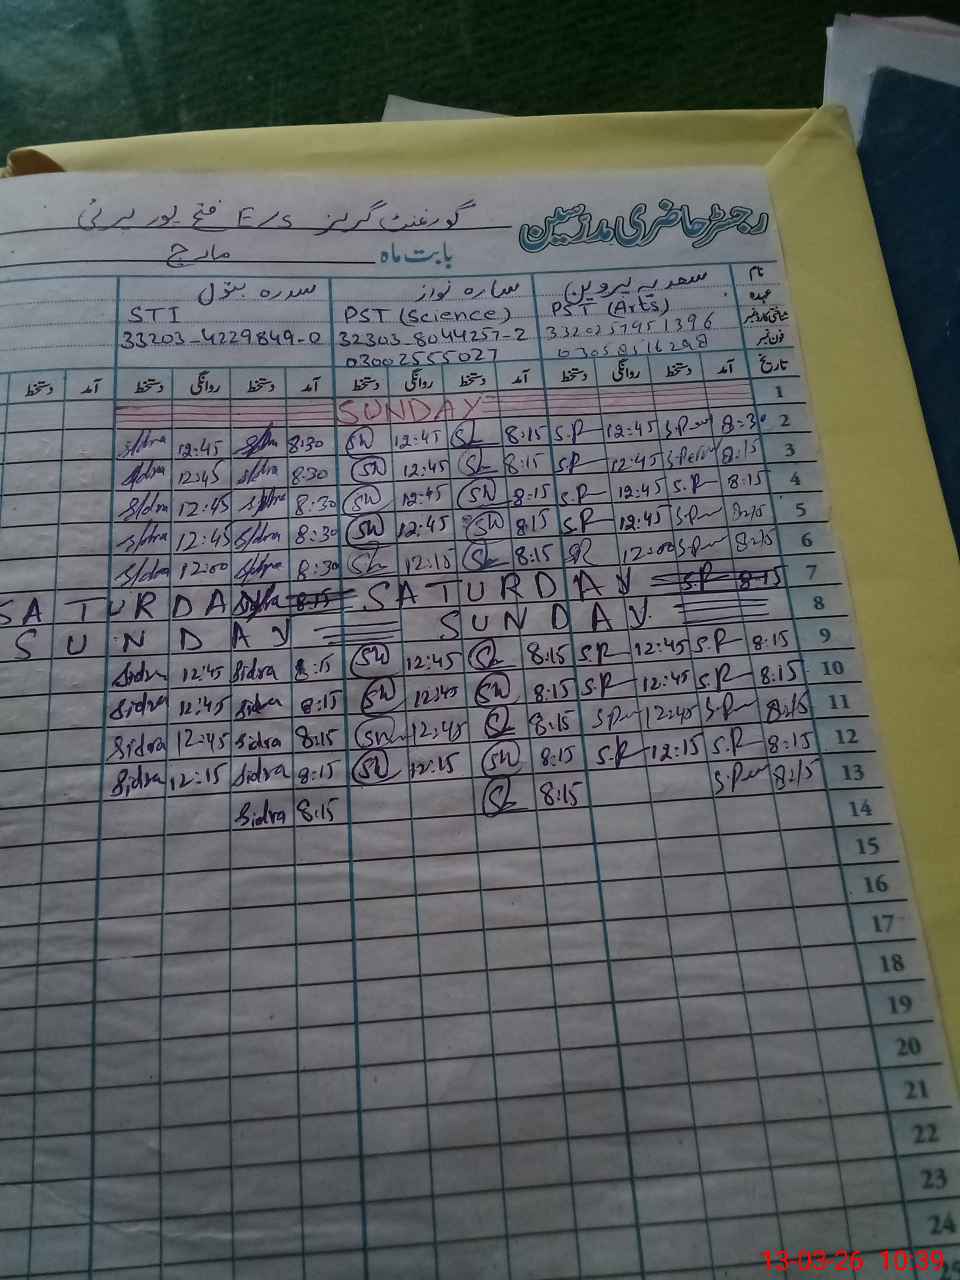 رجسٹر حاضری مدرسین
گورنمنٹ گرلز E/S فتح پور
بابت ماہ مارچ
نام سعدیہ پروین سارہ نواز سدرہ بتول
عہدہ PST (Arts) PST (Science) STI
شناختی کارڈ نمبر 32303-8044257-2 33203-4229849-0
فون نمبر 03058516298 03002555027
تاریخ آمد دستخط روانگی دستخط آمد دستخط روانگی دستخط آمد دستخط روانگی دستخط آمد دستخط
1 SUNDAY
2 8:30 S.Per 12:45 S.P 8:15 12:45 SN 8:30 Sidra 12:45 Sidra
3 8:15 12:45 S.P 8:15 12:45 SN 8:30 Sidra 12:45 Sidra
4 8:15 S.P 12:45 S.P 8:15 SN 12:45 SN 8:30 Sidra 12:45 Sidra
5 8:15 S.Per 12:45 S.P 8:15 SN 12:45 SN 8:30 Sidra 12:45 Sidra
6 8:15 S.Per 12:00 SP 8:15 12:15 8:30 Sidra 12:00 Sidra
7 8:15 S.P SATURDAY 8:15 Sidra SATURDAY
8 SUNDAY SUNDAY
9 8:15 S.P 12:45 S.P 8:15 12:45 SN 8:15 Sidra 12:45 Sidra
10 8:15 S.P 12:45 S.P 8:15 SN 12:45 SN 8:15 Sidra 12:45 Sidra
11 8:15 S.P 12:45 S.Per 8:15 12:45 SN 8:15 Sidra 12:45 Sidra
12 8:15 S.P 12:15 S.P 8:15 SN 12:15 SN 8:15 Sidra 12:15 Sidra
13 8:15 S.Per 8:15 8:15 Sidra
14
15
16
17
18
19
20
21
22
23
24
13-03-26 10:39